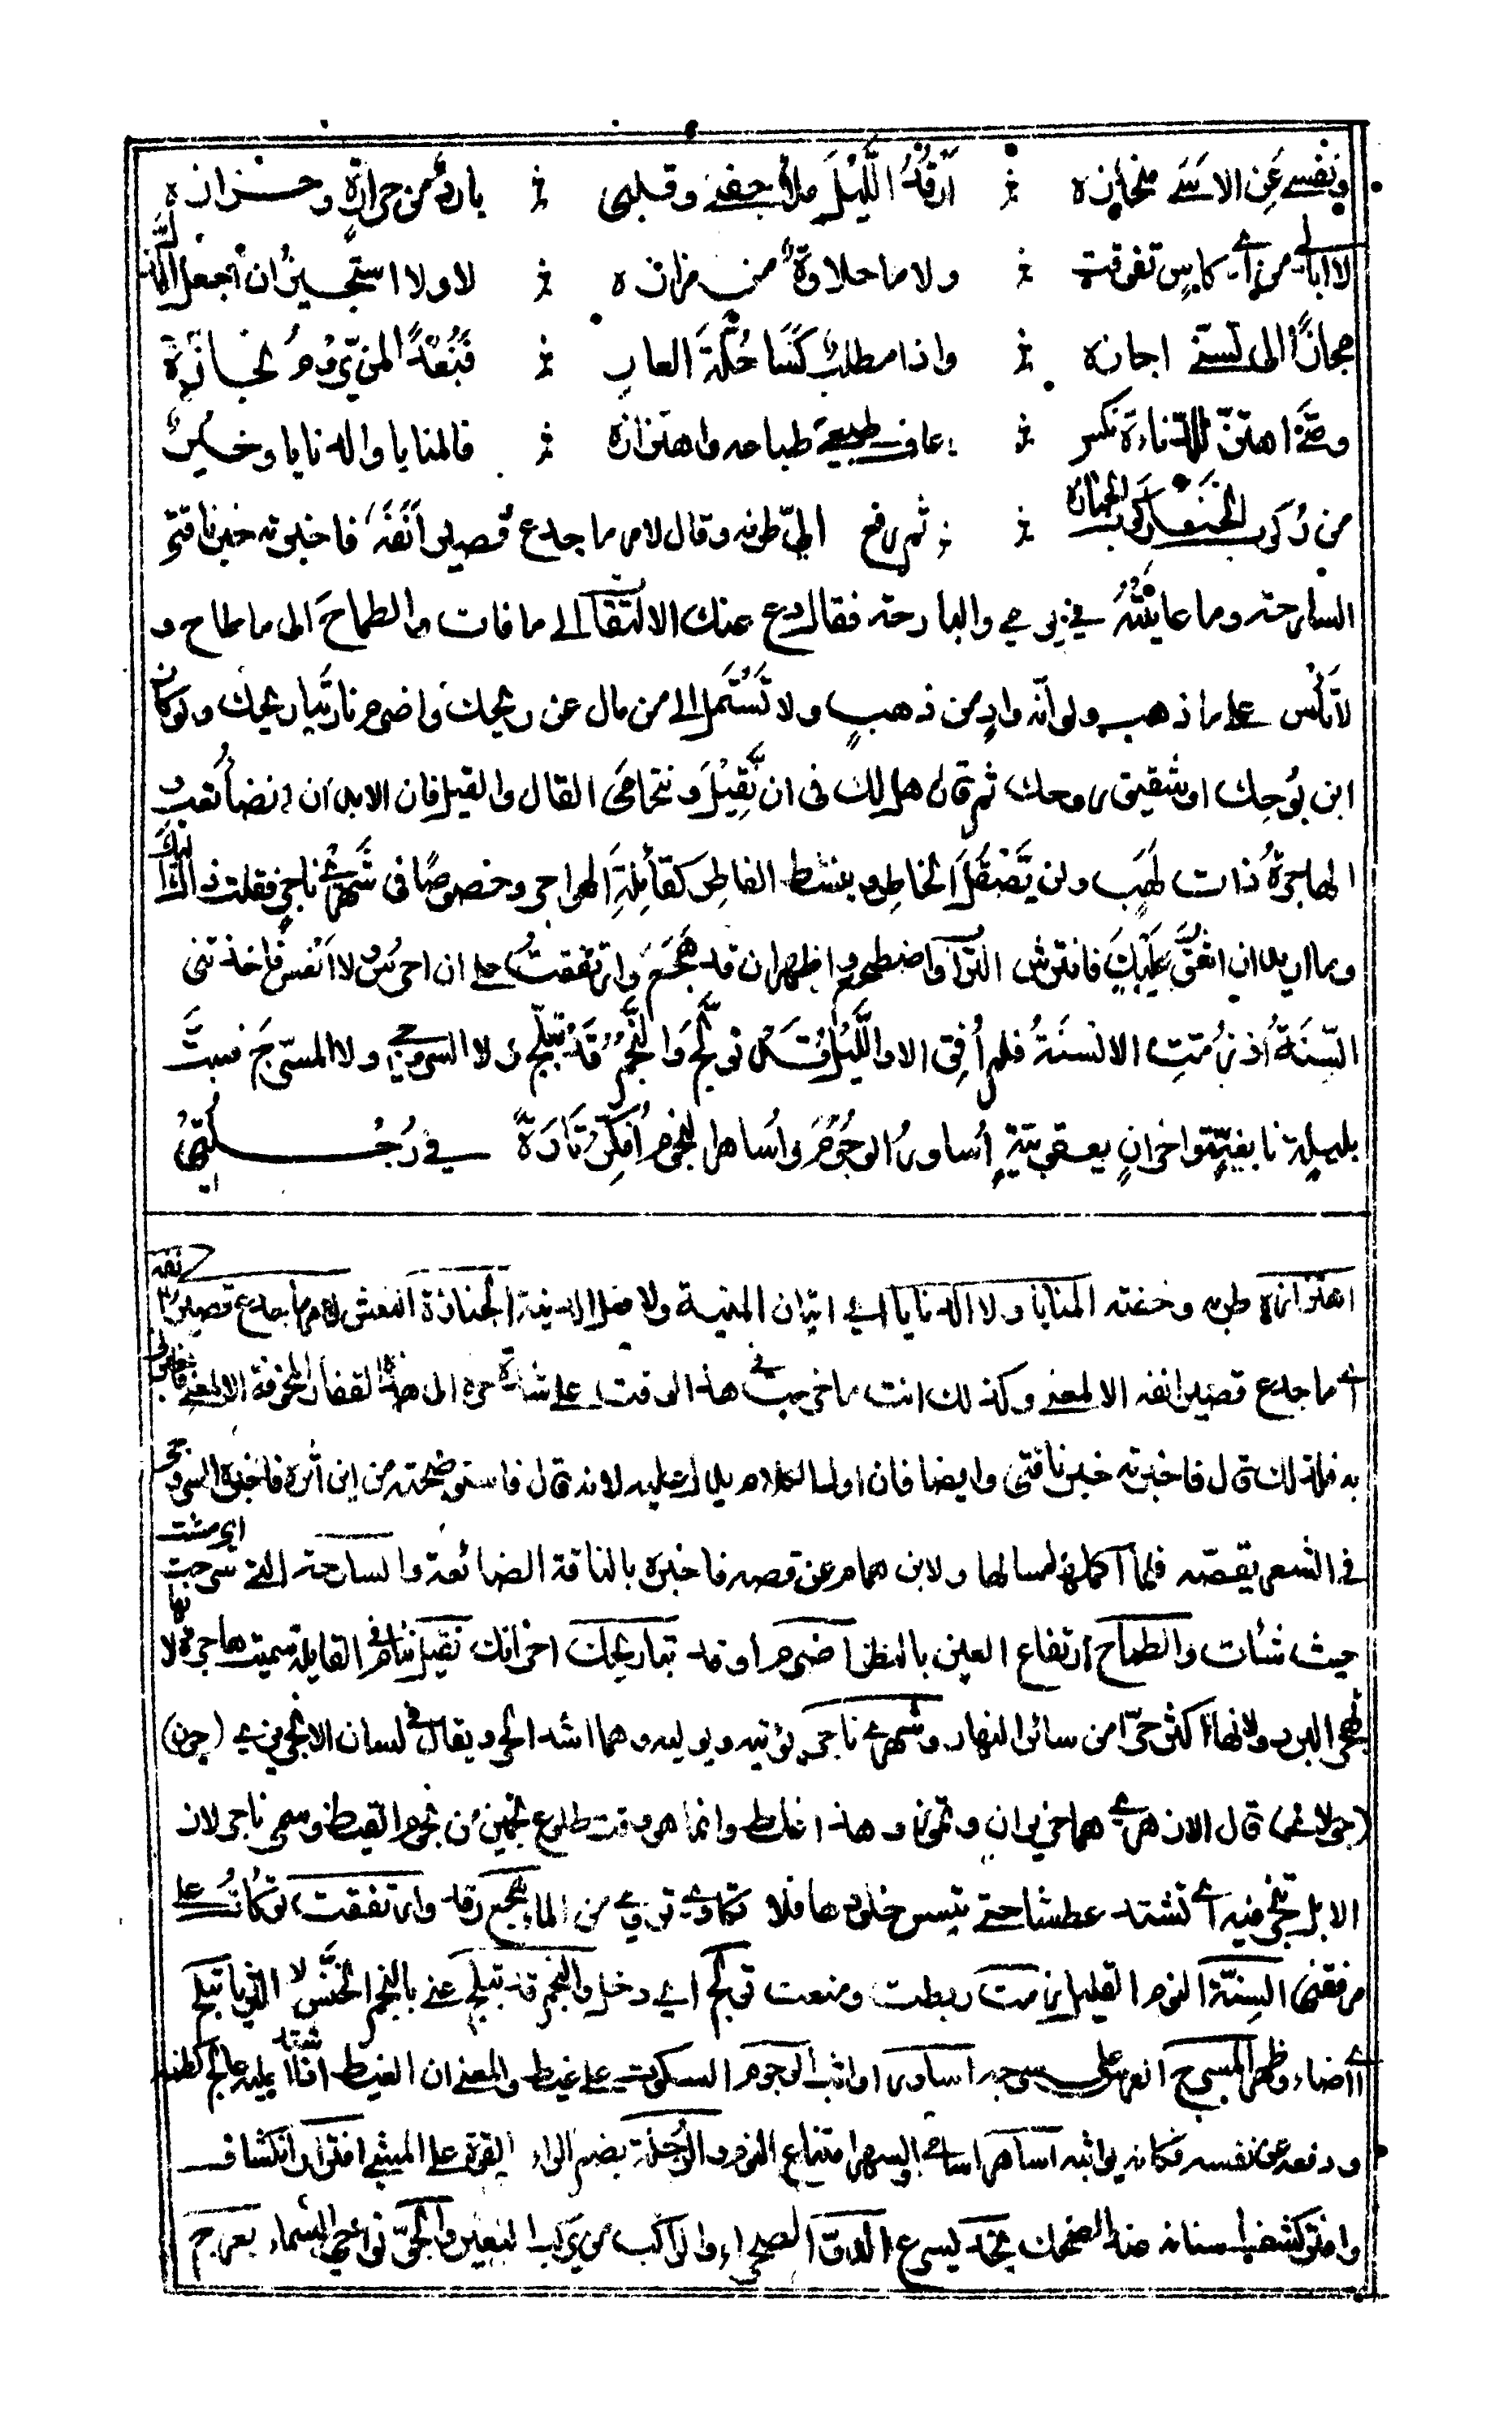 ونفسي عن الاسى منحازه ارقد الليل ملأ جفني وقلبي بارد من حرارة وحزازه
لا ابالي من اي كاس تفوقت ولا ما حلاوة من مزازه لا ولا استجيز ان اجعل الذل
مجازا الى تسني اجازه واذا مطلب كسا حلة العار فبعدا لمن يروم نجازه
ومتى اهتز للدناءة نكس عاف طبعي طباعه واهتزازه فالمنايا ولا الدنايا وخير
من ركوب الخنا ركوب الجنازه ثم رفع الي طرفه وقال لامر ما جدع قصير انفه فاخبرته خبر ناقتي
السارحة وما عاينته في يومي والبارحة فقال دع عنك الالتفات الى ما فات والطماح الى ما طاح و
لا تأس على ما ذهب ولو انه واد من ذهب ولا تستمل الى من مال عن ريحك واضرم نار تباريحك ولو كان
ابن بوحك او شقيق روحك ثم قال هل لك في ان تقيل ونتحامى القال والقيل فان الابدان انضاء تعب و
الهاجرة ذات لهب ولن يصقل الخاطر وينشط الفاتر كقائلة الهواجر وخصوصا في شهري ناجر فقلت ذاك اليك
وما اريد ان اشق عليك فافترش التراب واضطجع واظهر ان قد هجع وارتفقت على ان احرس ولا انعس فاخذتني
السنة اذ زمت الالسنة فلم افق الا والليل قد تولج والنجم قد تبلج ولا السروجي ولا المسرج فبت
بليلة نابغية واحزان يعقوبية اساور الوجوم واساهر النجوم افكر تارة في رجلتي
اهتزازه طربه وخفته المنايا ولا الدنايا اي اتيان المنية ولا فعل الدنية الجنازة النعش لامر ما جدع قصير انفه
اي ما جدع قصير انفه الا لمعنى وكذلك انت ما خرجت في هذا الوقت على شدة حره الى هذه القفار المخوفة الا لمعنى
به فلذلك قال فاخبرته خبر ناقتي وايضا فان اول الكلام يدل عليه لانه قال فاستوضحته من اين اثره فاخبره السروجي
في الشعر بقصته فلما اكملها سال ولابن همام عن قصه فاخبره بالناقة الضائعة والسارحة التي سرحت اي مشت
حيث شئت والطماح ارتفاع العين بالنظر اضرم اوقد تباريحك احزانك نقيل ننام في القايلة سميت هاجرة لا
تهجر البرد ولانها اكثر حرا من سائر النهار وشهري ناجر يونيه ويوليه وهما اشد الحر ويقال في لسان الانجريزي (جون)
(جولائي) قال الازهري هما حزيران وتموز وهذا غلط وانما هو وقت طلوع نجمين من نجوم القيظ وسمي ناجر لان
الابل تنجر فيه اي تشتد عطشا حتى تيبس جلودها فلا تكاد تروى من الماء هجع رقد وارتفقت توكأت على
مرفقي السنة النوم القليل زمت ربطت ومنعت تولج اي دخل والنجم قد تبلج عنى بالنجم الخنس لا التي تبلج
اي اضاء وظهر المسرج الفرس على سرجه اساور اواثب الوجوم السكوت على غيظ والمعنى ان الغيظ اذا اشتد عليه عالج كظمه
ودفعه عن نفسه فكانه يواثبه اساهر اسامر والسهر امتناع النوم والرجلة بضم الراء القوة على المشي افترار انكشاف
وافتر كشف اسنانه عند الضحك يخد يسرع الدو الصحراء والراكب من يركب البعير والجو نواحي السماء يعرج